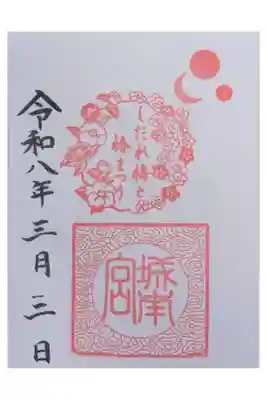 令和八年三月三日
しだれ梅と
椿まつり
城南宮